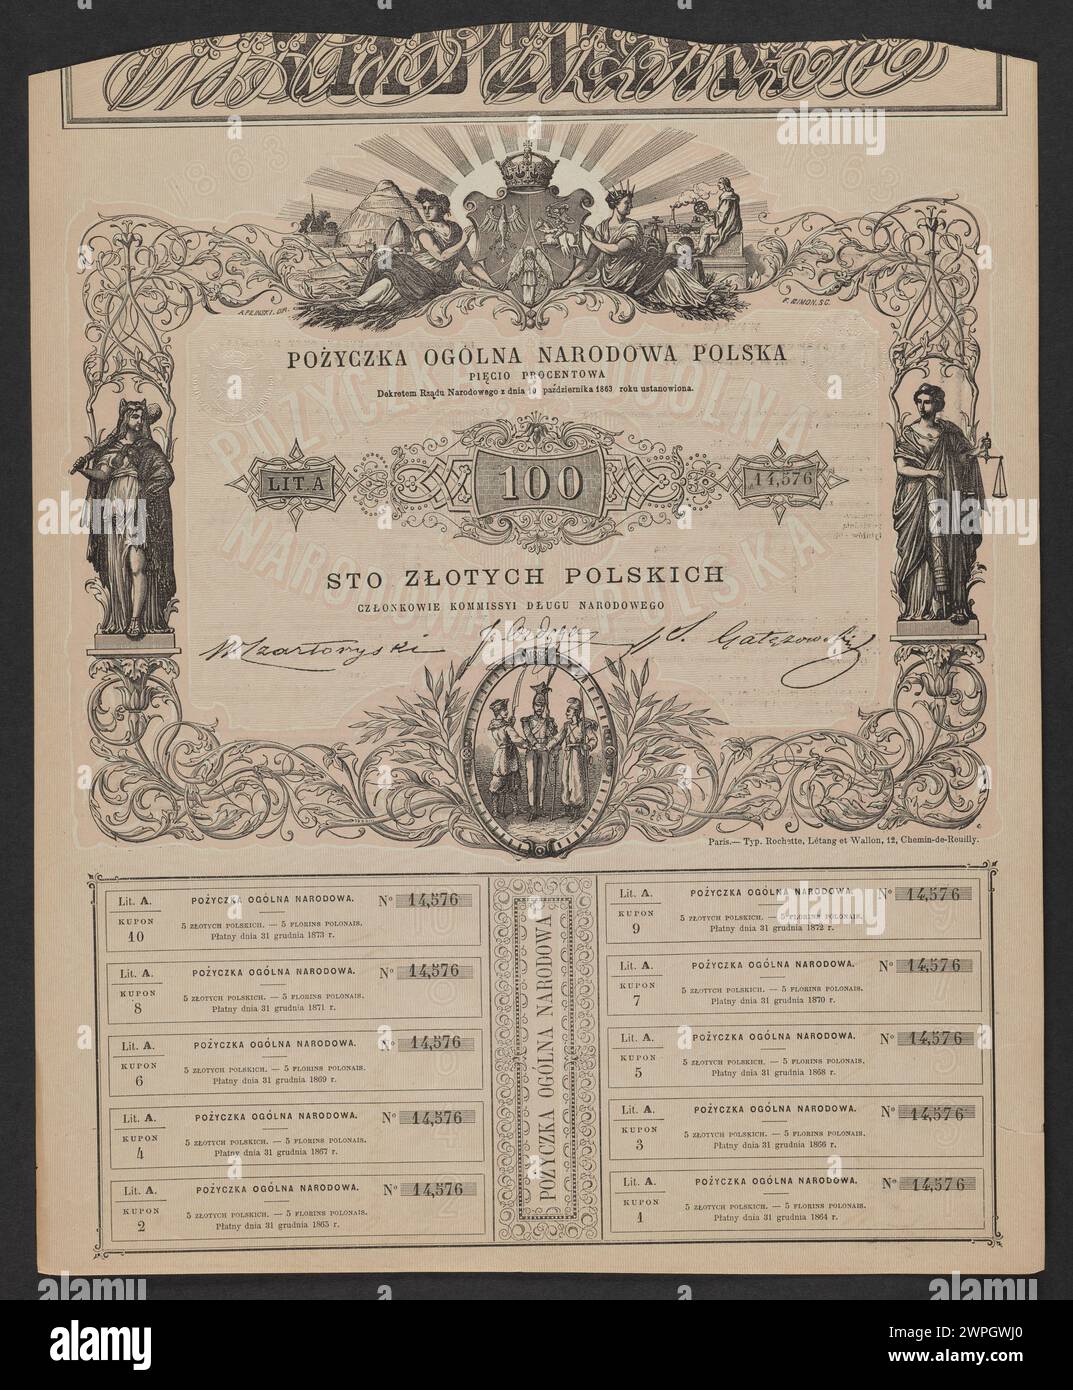 A. PILINSKI. DIR.
F. RIMON. SC.
POŻYCZKA OGÓLNA NARODOWA POLSKA
PIĘCIO PROCENTOWA
Dekretem Rządu Narodowego z dnia 10 października 1863 roku ustanowiona.
POŻYCZKA OGÓLNA
NARODOWA POLSKA
LIT. A
100
14,576
STO ZŁOTYCH POLSKICH
CZŁONKOWIE KOMMISSYI DŁUGU NARODOWEGO
W Czartoryski
S. Gałęzowski
Paris.— Typ. Rochette, Létang et Wallon, 12, Chemin-de-Reuilly.
POŻYCZKA OGÓLNA NARODOWA
Lit. A. POŻYCZKA OGÓLNA NARODOWA. Nº 14,576
KUPON 5 ZŁOTYCH POLSKICH. — 5 FLORINS POLONAIS.
10 Płatny dnia 31 grudnia 1873 r.
Lit. A. POŻYCZKA OGÓLNA NARODOWA. Nº 14,576
KUPON 5 ZŁOTYCH POLSKICH. — 5 FLORINS POLONAIS.
9 Płatny dnia 31 grudnia 1872 r.
Lit. A. POŻYCZKA OGÓLNA NARODOWA. Nº 14,576
KUPON 5 ZŁOTYCH POLSKICH. — 5 FLORINS POLONAIS.
8 Płatny dnia 31 grudnia 1871 r.
Lit. A. POŻYCZKA OGÓLNA NARODOWA. Nº 14,576
KUPON 5 ZŁOTYCH POLSKICH. — 5 FLORINS POLONAIS.
7 Płatny dnia 31 grudnia 1870 r.
Lit. A. POŻYCZKA OGÓLNA NARODOWA. Nº 14,576
KUPON 5 ZŁOTYCH POLSKICH. — 5 FLORINS POLONAIS.
6 Płatny dnia 31 grudnia 1869 r.
Lit. A. POŻYCZKA OGÓLNA NARODOWA. Nº 14,576
KUPON 5 ZŁOTYCH POLSKICH. — 5 FLORINS POLONAIS.
5 Płatny dnia 31 grudnia 1868 r.
Lit. A. POŻYCZKA OGÓLNA NARODOWA. Nº 14,576
KUPON 5 ZŁOTYCH POLSKICH. — 5 FLORINS POLONAIS.
4 Płatny dnia 31 grudnia 1867 r.
Lit. A. POŻYCZKA OGÓLNA NARODOWA. Nº 14,576
KUPON 5 ZŁOTYCH POLSKICH. — 5 FLORINS POLONAIS.
3 Płatny dnia 31 grudnia 1866 r.
Lit. A. POŻYCZKA OGÓLNA NARODOWA. Nº 14,576
KUPON 5 ZŁOTYCH POLSKICH. — 5 FLORINS POLONAIS.
2 Płatny dnia 31 grudnia 1865 r.
Lit. A. POŻYCZKA OGÓLNA NARODOWA. Nº 14,576
KUPON 5 ZŁOTYCH POLSKICH. — 5 FLORINS POLONAIS.
1 Płatny dnia 31 grudnia 1864 r.
alamy
Image ID: 2WPGWJ0
www.alamy.com